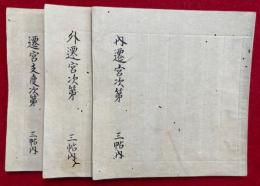 内遷宮次第 三帖内
外遷宮次第 三帖内
遷宮支度次第 三帖内